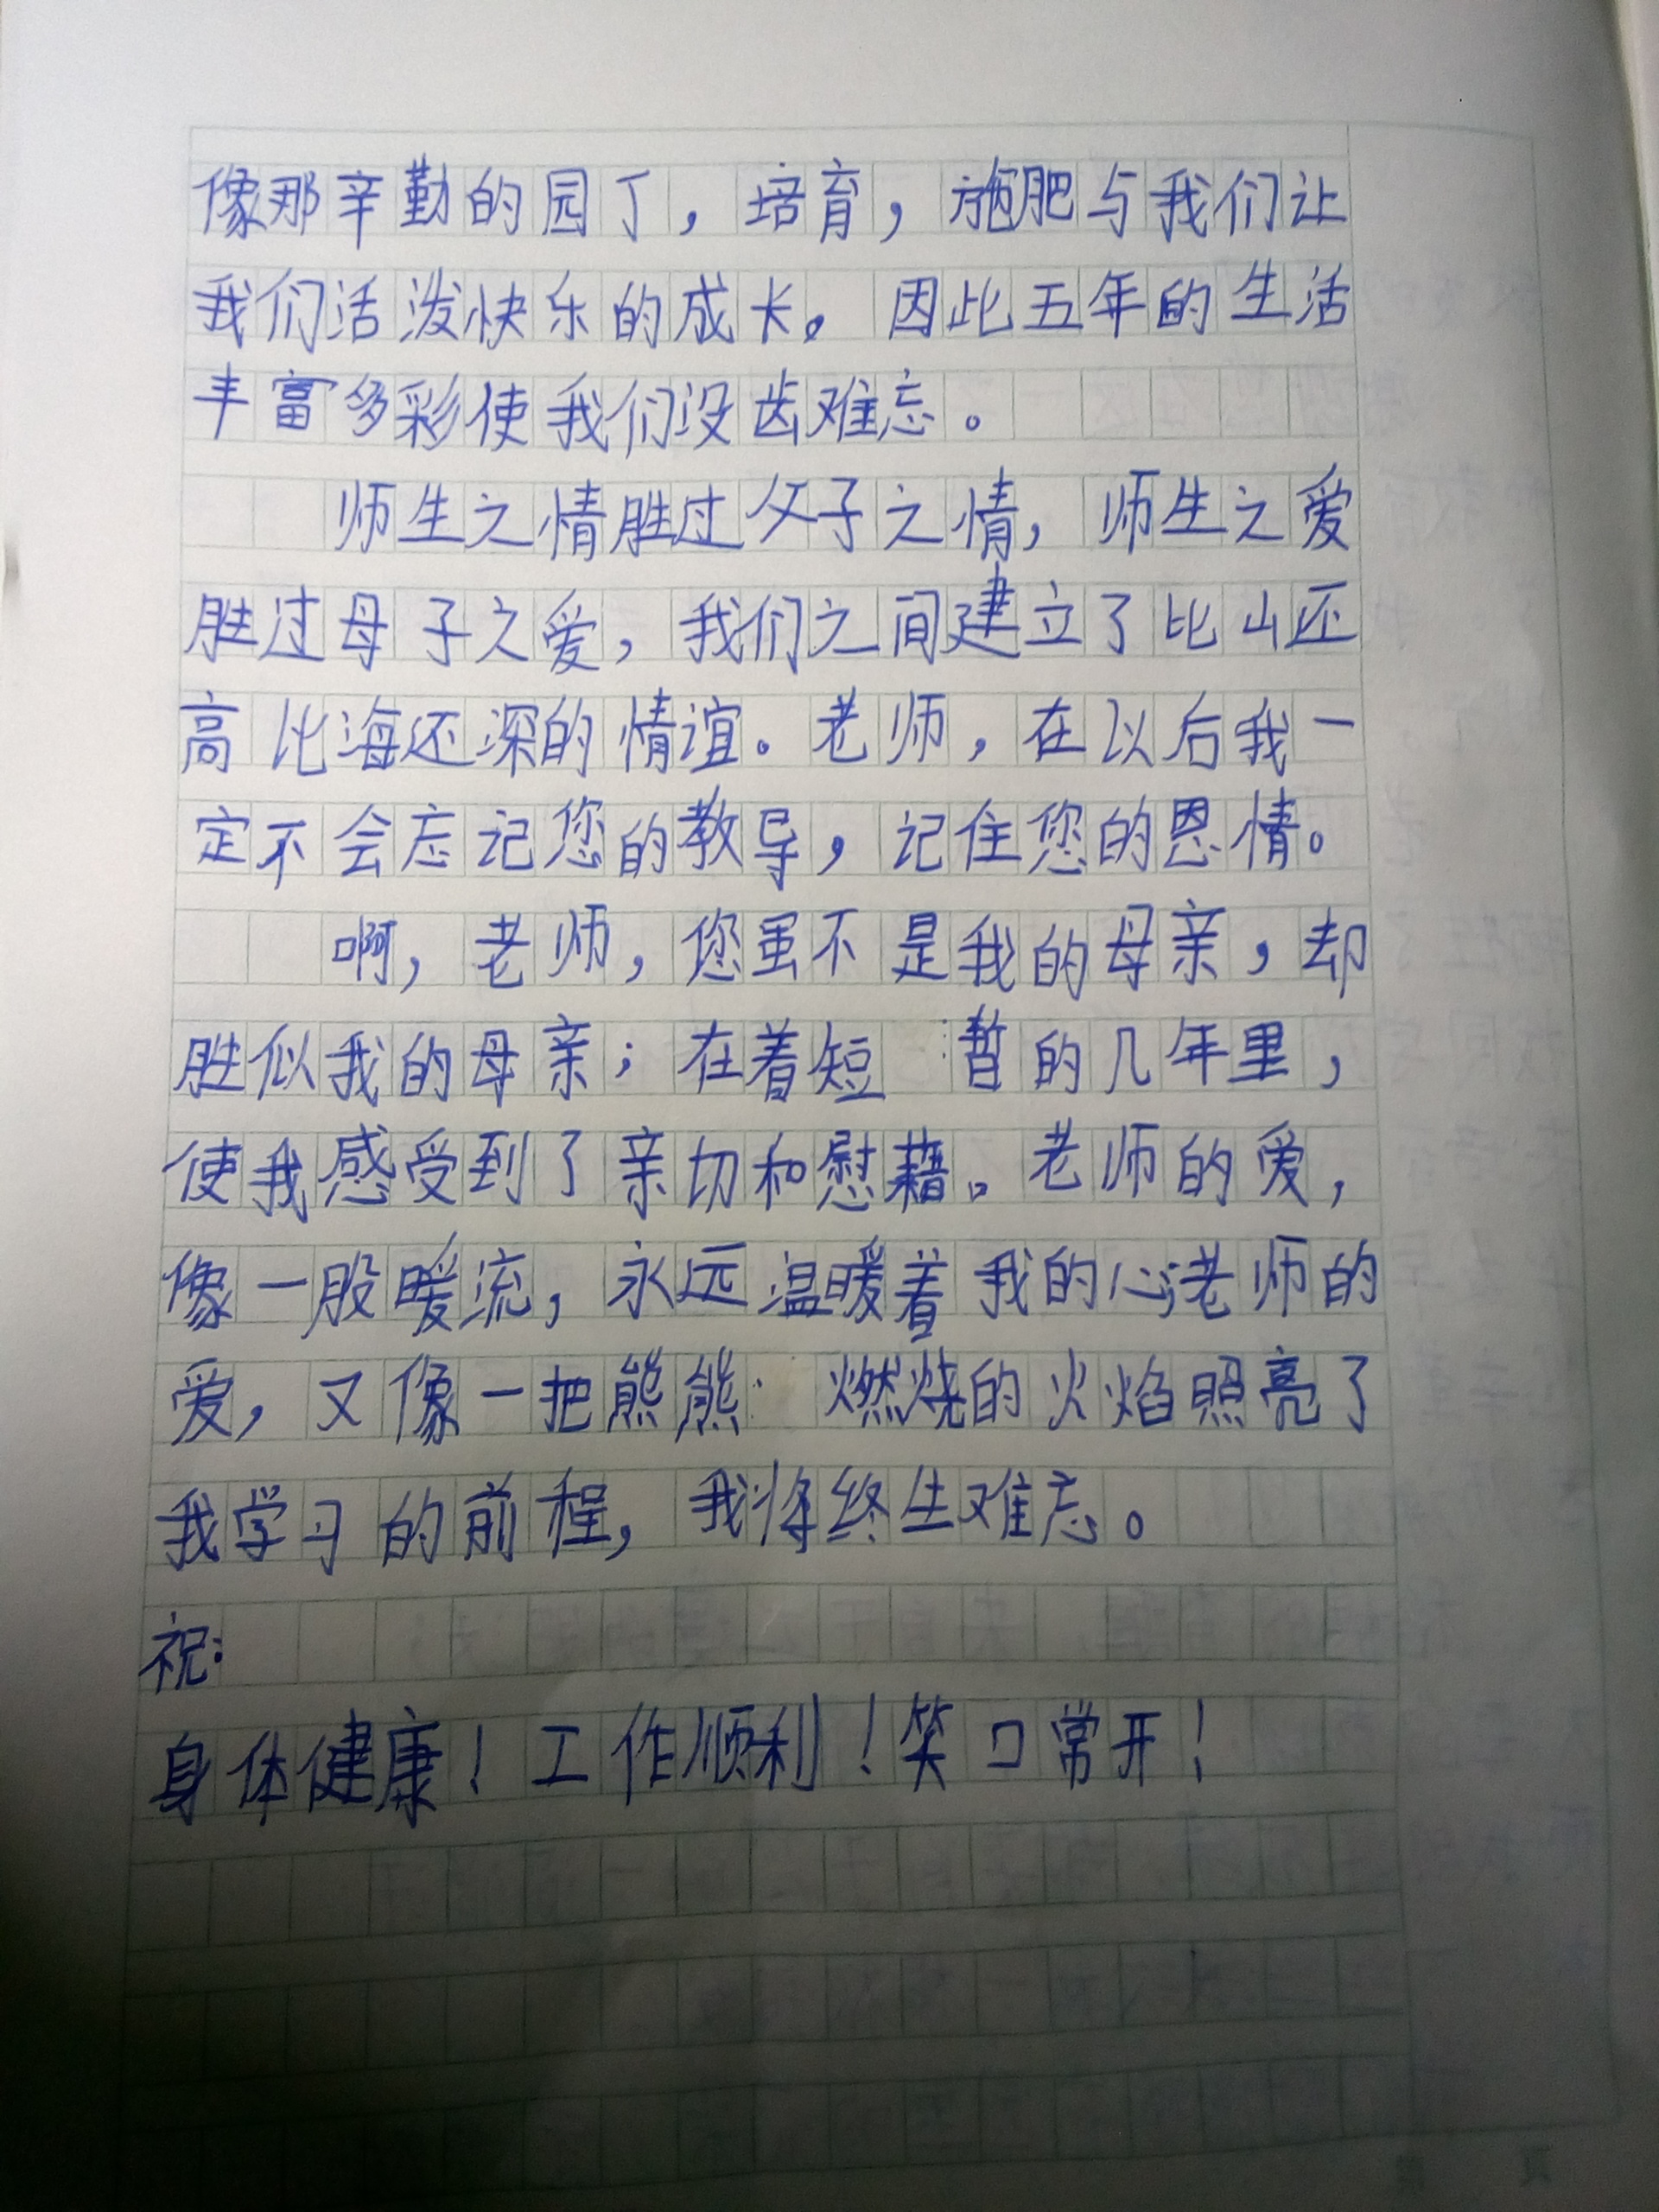 像那辛勤的园丁，培育，施肥与我们让
我们活泼快乐的成长。因此五年的生活
丰富多彩使我们没齿难忘。
师生之情胜过父子之情，师生之爱
胜过母子之爱，我们之间建立了比山还
高比海还深的情谊。老师，在以后我一
定不会忘记您的教导，记住您的恩情。
啊，老师，您虽不是我的母亲，却
胜似我的母亲；在着短暂的几年里，
使我感受到了亲切和慰藉。老师的爱，
像一股暖流，永远温暖着我的心；老师的
爱，又像一把熊熊燃烧的火焰照亮了
我学习的前程，我将终生难忘。
祝：
身体健康！工作顺利！笑口常开！